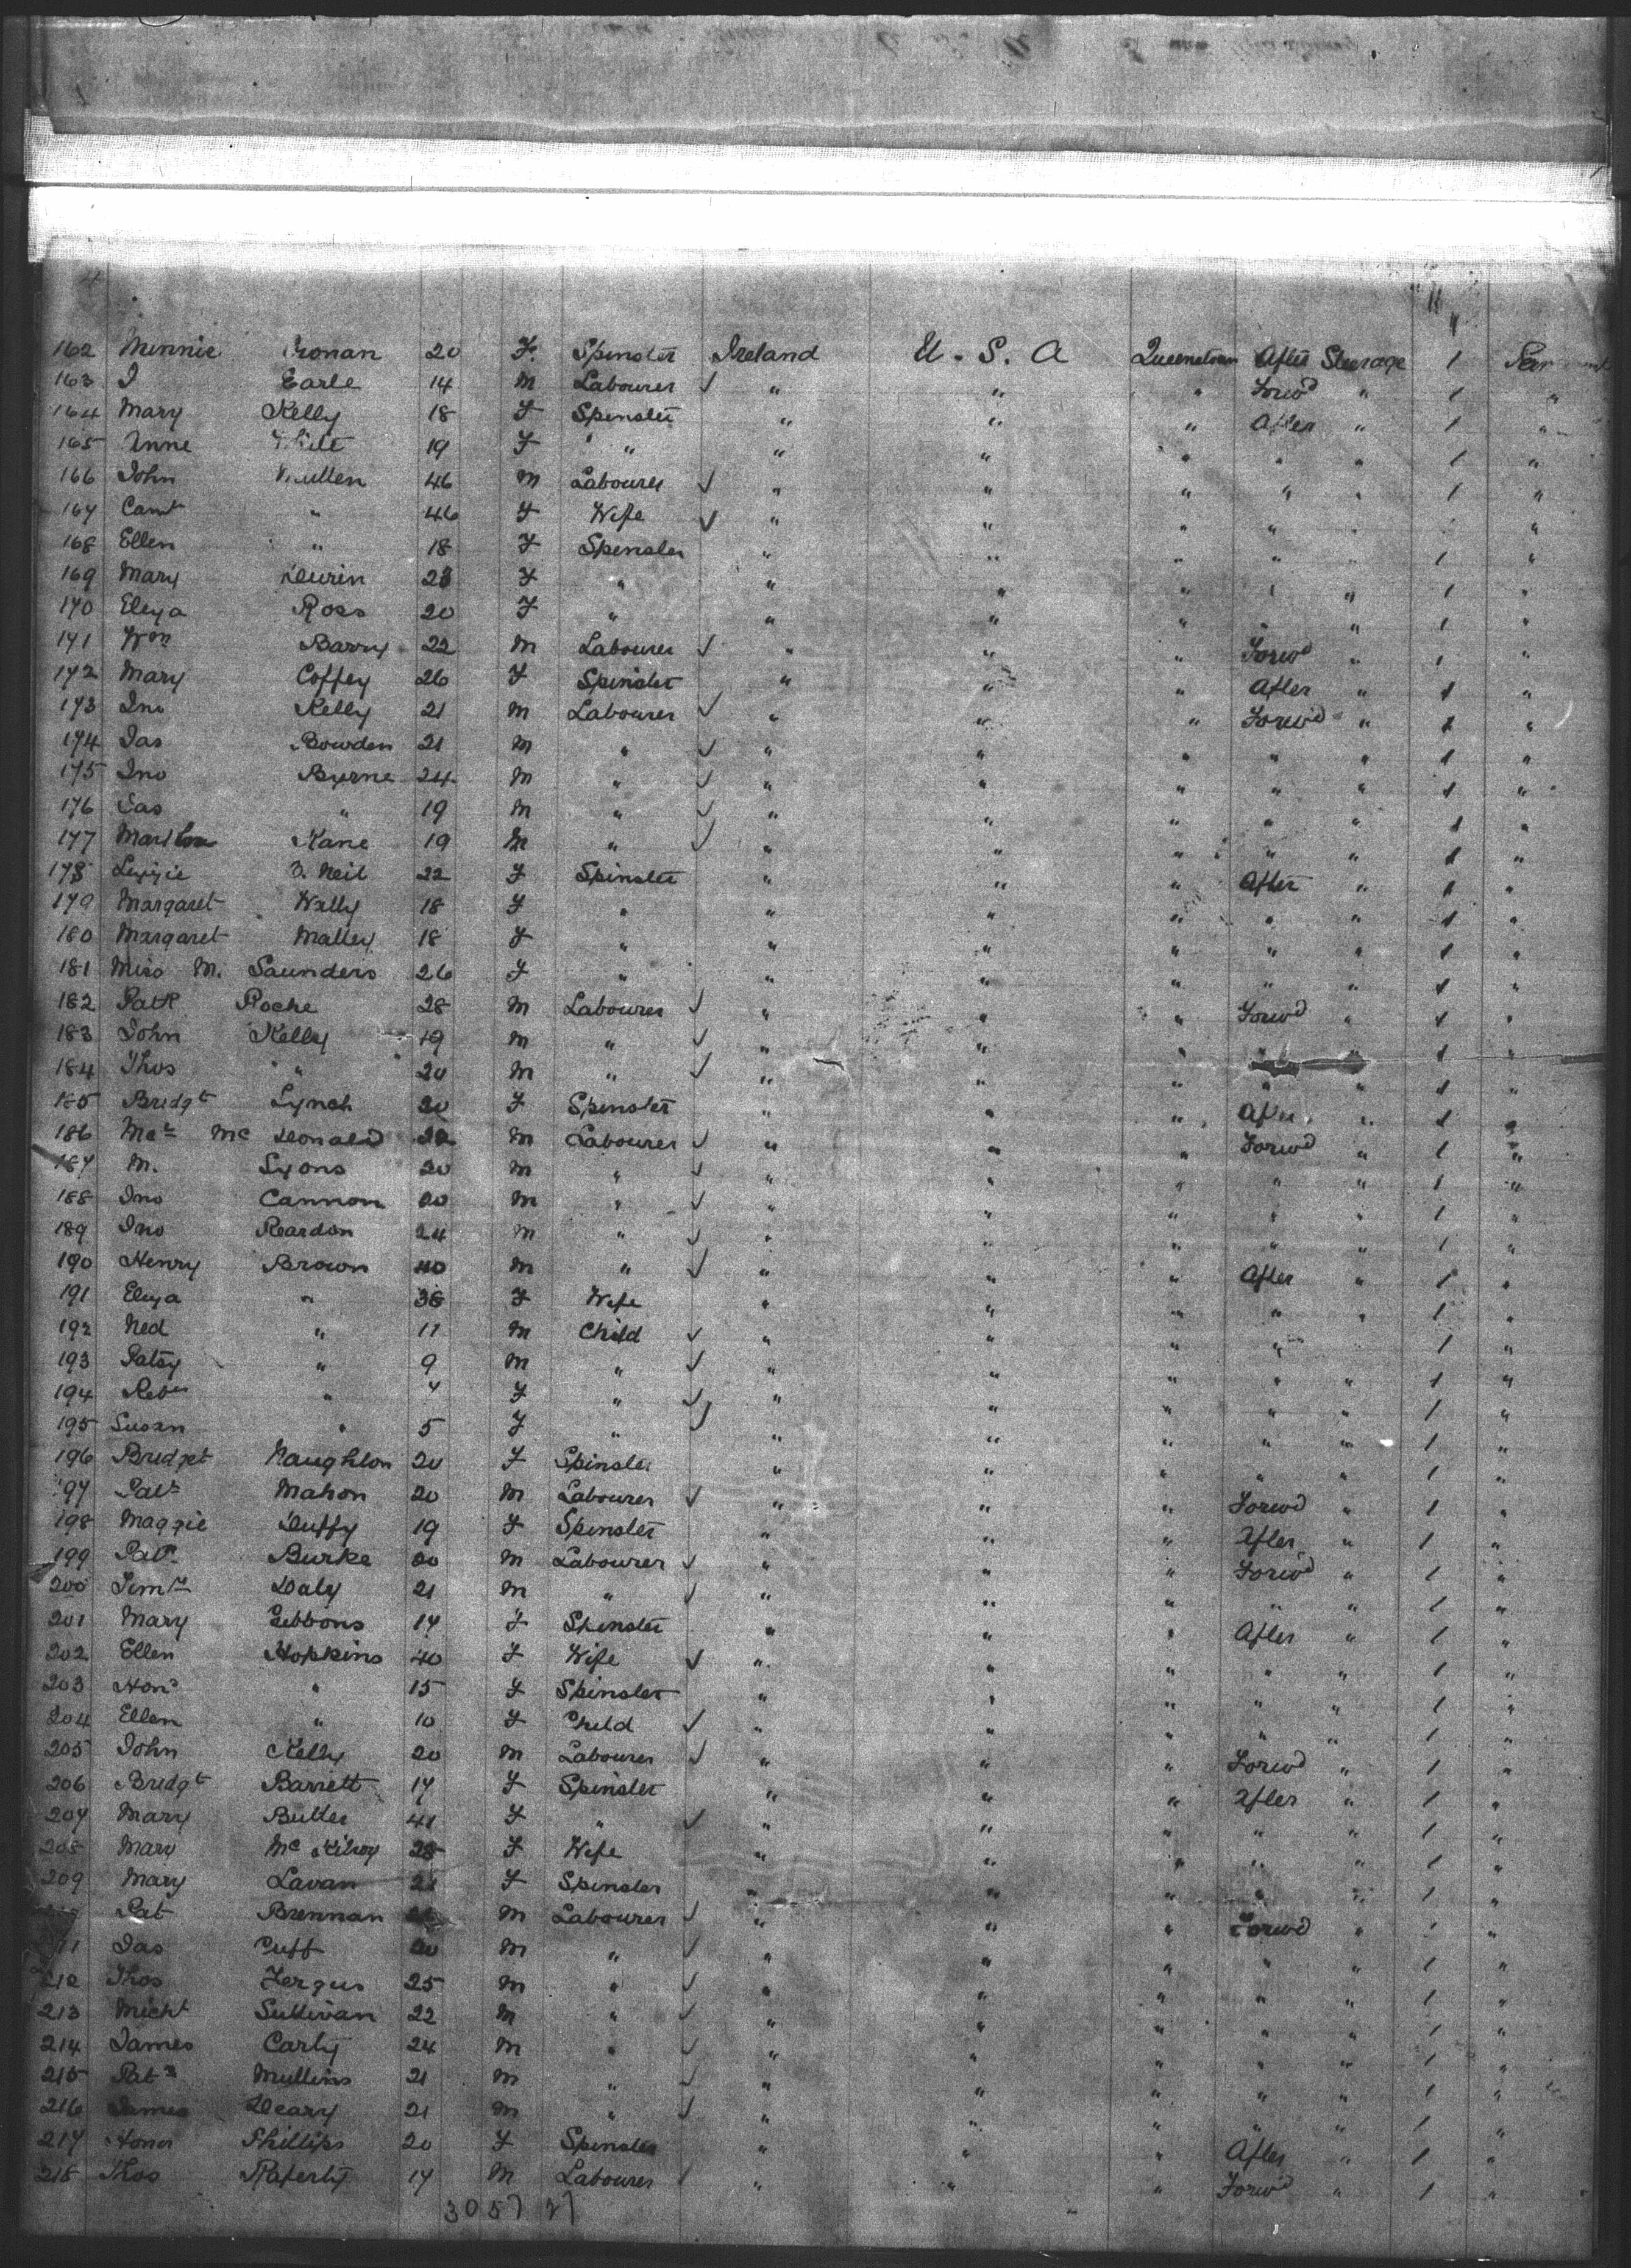 162 Minnie Cronan 20 F. Spinster Ireland U. S. A Queenstown After Steerage 1
163 J Earle 14 M Labourer ✓ " " " Forwd " 1 "
164 Mary Kelly 18 F Spinster " " " After " 1 "
165 Anne White 19 F " " " " " " 1 "
166 John Mullen 46 M Labourer ✓ " " " " " 1 "
167 " 46 F Wife ✓ " " " " "
168 Ellen " 18 F Spinster " " " " " 1 "
169 Mary 23 F " " " " " " 1 "
170 Eliza Ross 20 F " " " " " " 1 "
171 Wm Barry 22 M Labourer ✓ " " " Forwd " 1 "
172 Mary Coffey 26 F Spinster " " " After " 1 "
173 Jno Kelly 21 M Labourer ✓ " " " Forwd " 1 "
174 Jas Bowden 21 M " ✓ " " " " " 1 "
175 Jno Byrne 24 M " ✓ " " " " " 1 "
176 Jas " 19 M " ✓ " " " " " 1 "
177 Kane 19 M " ✓ " " " " " 1 "
178 Lizzie O. Neil 22 F Spinster " " " After " 1 "
179 Margaret Wally 18 F " " " " " " 1 "
180 Margaret Malley 18 F " " " " " " 1 "
181 Miss M. Saunders 26 F " " " " " " 1 "
182 Patk Roche 28 M Labourer ✓ " " " Forwd " 1 "
183 John Kelly 19 M " ✓ " " " " " 1 "
184 Thos " 20 M " ✓ " " " " " 1 "
185 Bridgt Lynch 20 F Spinster " " " After " 1 "
186 Mc Donald 22 M Labourer ✓ " " " Forwd " 1 "
187 M. Lyons 20 M " ✓ " " " " " 1 "
188 Jno Cannon 20 M " ✓ " " " " " 1 "
189 Jno Reardon 24 M " ✓ " " " " " 1 "
190 Henry Brown 40 M " ✓ " " " After " 1 "
191 Eliza " 38 F Wife " " " " " 1 "
192 Ned " 11 M Child ✓ " " " " " 1 "
193 Patsy " 9 M " ✓ " " " " " 1 "
194 " 7 F " ✓ " " " " " 1 "
195 Susan " 5 F " ✓ " " " " " 1 "
196 Bridget Naughton 20 F Spinster " " " " " 1 "
197 Patk Mahon 20 M Labourer ✓ " " " Forwd " 1 "
198 Maggie Duffy 19 F Spinster " " " After " 1 "
199 Patk Burke 20 M Labourer ✓ " " " Forwd " 1 "
200 Daly 21 M " ✓ " " " " " 1 "
201 Mary Gibbons 17 F Spinster " " " After " 1 "
202 Ellen Hopkins 40 F Wife ✓ " " " " " 1 "
203 Hona " 15 F Spinster " " " " " 1 "
204 Ellen " 10 F Child ✓ " " " " " 1 "
205 John Kelly 20 M Labourer ✓ " " " Forwd " 1 "
206 Bridgt Barrett 17 F Spinster " " " After " 1 "
207 Mary Butler 41 F " ✓ " " " " " 1 "
208 Mary Mc Kilroy 28 F Wife " " " " " 1 "
209 Mary Lavan 21 F Spinster " " " " " 1 "
Pat Brennan M Labourer ✓ " " " Forwd " 1 "
211 Jas Cuff 20 M " ✓ " " " " " 1 "
212 Thos Fergus 25 M " ✓ " " " " " 1 "
213 Michl Sullivan 22 M " ✓ " " " " " 1 "
214 James Carty 24 M " ✓ " " " " " 1 "
215 Patk Mullins 21 M " ✓ " " " " " 1 "
216 James Deary 21 M " ✓ " " " " " 1 "
217 Honor Phillips 20 F Spinster " " " After " 1 "
218 Thos Raferty 17 M Labourer ✓ " " " Forwd " 1 "
3057